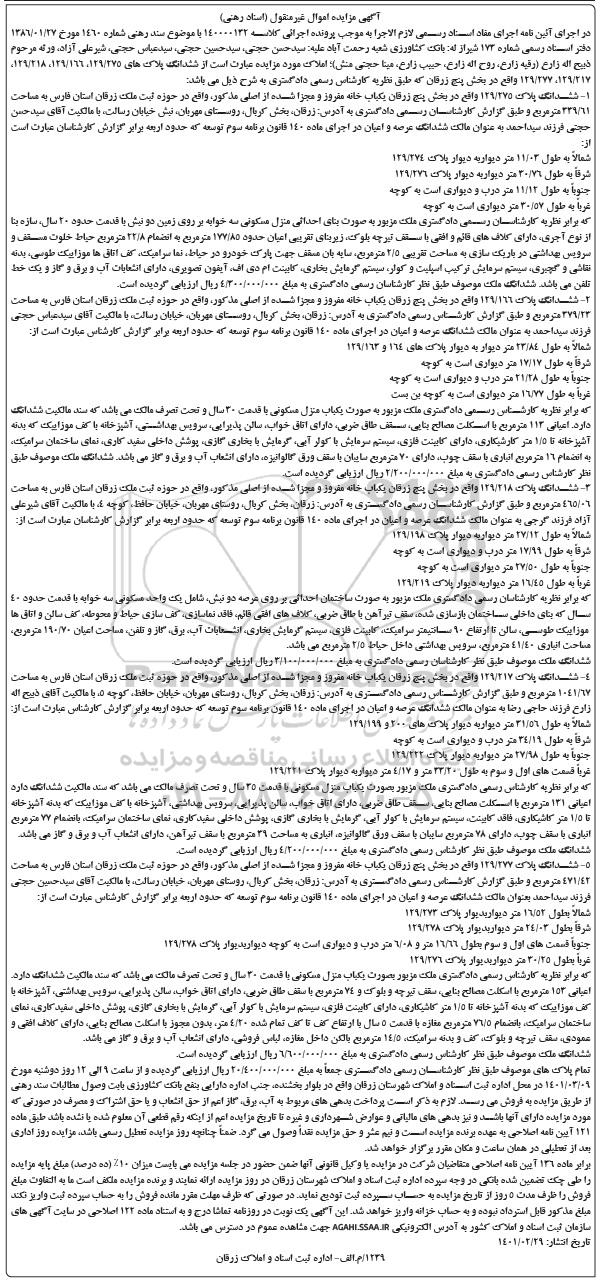 آگهی مزایده اموال غیرمنقول (اسناد رهنی)
در اجرای آئین نامه اجرای مفاد اسناد رسمی لازم الاجرا به موجب پرونده اجرائی کلاسه ۱۴۰۰۰۰۱۳۲ با موضوع سند رهنی شماره ۱۴۶۰ مورخ ۱۳۸۶/۰۱/۲۷
دفتر اسناد رسمی شماره ۱۷۳ شیراز له: بانک کشاورزی شعبه رحمت آباد علیه: سیدحسن حجتی، سیدحسین حجتی، سیدعباس حجتی، شیرعلی آزاد، ورثه مرحوم
ذبیح اله زارع (رقیه زارع، روح اله زارع، حبیب زارع، مینا حجتی منش)؛ املاک مورد مزایده عبارت است از ششدانگ پلاک های ۱۲۹/۲۷۵، ۱۲۹/۱۶۶، ۱۲۹/۲۱۸،
۱۲۹/۲۱۷، ۱۲۹/۲۷۷ واقع در بخش پنج زرقان که طبق نظریه کارشناس رسمی دادگستری به شرح ذیل می باشد:
۱- ششدانگ پلاک ۱۲۹/۲۷۵ واقع در بخش پنج زرقان یکباب خانه مفروز و مجزا شده از اصلی مذکور، واقع در حوزه ثبت ملک زرقان استان فارس به مساحت
۳۳۹/۶۱ مترمربع و طبق گزارش کارشناسان رسمی دادگستری به آدرس: زرقان، بخش کربال، روستای مهربان، نبش خیابان رسالت، با مالکیت آقای سیدحسن
حجتی فرزند سیداحمد به عنوان مالک ششدانگ عرصه و اعیان در اجرای ماده ۱۴۰ قانون برنامه سوم توسعه که حدود اربعه برابر گزارش کارشناسان عبارت است
از:
شمالاً به طول ۱۱/۰۳ متر دیواربه دیوار پلاک ۱۲۹/۲۷۴
شرقاً به طول ۳۰/۷۶ متر دیواربه دیوار پلاک ۱۲۹/۲۷۶
جنوباً به طول ۱۱/۱۲ متر درب و دیواری است به کوچه
غرباً به طول ۳۰/۵۷ متر درب و دیواری است به کوچه
که برابر نظریه کارشناسان رسمی دادگستری ملک مزبور به صورت بنای احداثی منزل مسکونی سه خوابه بر روی زمین دو نبش با قدمت حدود ۲۰ سال، سازه بنا
از نوع آجری، دارای کلاف های قائم و افقی با سقف تیرچه بلوک، زیربنای تقریبی اعیان حدود ۱۷۷/۸۵ مترمربع به انضمام ۲۲/۸ مترمربع حیاط خلوت مسقف و
سرویس بهداشتی در باریک سازی به مساحت تقریبی ۲/۵ مترمربع، سایه بان مسقف جهت پارک خودرو در حیاط، نما سرامیک، کف اتاق ها موزاییک طوسی، بدنه
نقاشی و گچبری، سیستم سرمایش ترکیب اسپلیت و کولر، سیستم گرمایش بخاری، کابینت ام دی اف، آیفون تصویری، دارای انشعابات آب و برق و گاز و یک خط
تلفن می باشد. ششدانگ ملک موصوف طبق نظر کارشناسان رسمی دادگستری به مبلغ ۴/۳۰۰/۰۰۰/۰۰۰ ریال ارزیابی گردیده است.
۲- ششدانگ پلاک ۱۲۹/۱۶۶ واقع در بخش پنج زرقان یکباب خانه مفروز و مجزا شده از اصلی مذکور، واقع در حوزه ثبت ملک زرقان استان فارس به مساحت
۳۷۹/۲۳ مترمربع و طبق گزارش کارشناس رسمی دادگستری به آدرس: زرقان، بخش کربال، روستای مهربان، خیابان رسالت، با مالکیت آقای سیدعباس حجتی
فرزند سیداحمد به عنوان مالک ششدانگ عرصه و اعیان در اجرای ماده ۱۴۰ قانون برنامه سوم توسعه که حدود اربعه برابر گزارش کارشناس عبارت است از:
شمالاً به طول ۲۳/۸۴ متر دیوار به دیوار پلاک های ۱۶۴ و ۱۲۹/۱۶۳
شرقاً به طول ۱۷/۱۷ متر دیواری است به کوچه
جنوباً به طول ۲۱/۲۸ متر درب و دیواری است به کوچه
غرباً به طول ۱۶/۷۷ متر دیواری است به کوچه بن بست
که برابر نظریه کارشناس رسمی دادگستری ملک مزبور به صورت یکباب منزل مسکونی با قدمت ۳۰ سال و تحت تصرف مالک می باشد که سند مالکیت ششدانگ
دارد. اعیانی ۱۱۳ مترمربع با اسکلت مصالح بنایی، سقف طاق ضربی، دارای اتاق خواب، سالن پذیرایی، سرویس بهداشتی، آشپزخانه با کف موزاییک که بدنه
آشپزخانه تا ۱/۵ متر کارشیکاری، دارای کابینت فلزی، سیستم سرمایش با کولر آبی، گرمایش با بخاری گازی، پوشش داخلی سفید کاری، نمای ساختمان سرامیک،
به انضمام ۱۶ مترمربع انباری با سقف چوب، دارای ۷۰ مترمربع سایبان با سقف ورق گالوانیزه، دارای انشعاب آب و برق و گاز می باشد. ششدانگ ملک موصوف طبق
نظر کارشناس رسمی دادگستری به مبلغ ۲/۲۰۰/۰۰۰/۰۰۰ ریال ارزیابی گردیده است.
۳- ششدانگ پلاک ۱۲۹/۲۱۸ واقع در بخش پنج زرقان یکباب خانه مفروز و مجزا شده از اصلی مذکور، واقع در حوزه ثبت ملک زرقان استان فارس به مساحت
۴۶۵/۰۶ مترمربع و طبق گزارش کارشناسان رسمی دادگستری به آدرس: زرقان، بخش کربال، روستای مهربان، خیابان حافظ، کوچه ۴، با مالکیت آقای شیرعلی
آزاد فرزند گرجی به عنوان مالک ششدانگ عرصه و اعیان در اجرای ماده ۱۴۰ قانون برنامه سوم توسعه که حدود اربعه برابر گزارش کارشناسان عبارت است از:
شمالاً به طول ۲۷/۱۲ متر دیواربه دیوار پلاک ۱۲۹/۱۹۸
شرقاً به طول ۱۷/۹۹ متر درب و دیواری است به کوچه
جنوباً به طول ۲۷/۵۰ متر دیواری است به کوچه
غرباً به طول ۱۶/۴۵ متر دیواربه دیوار پلاک ۱۲۹/۲۱۹
که برابر نظریه کارشناسان رسمی دادگستری ملک مزبور به صورت ساختمان احداثی بر روی عرصه دو نبش، شامل یک واحد مسکونی سه خوابه با قدمت حدود ۴۰
سال که بنای داخلی ساختمان بازسازی شده، سقف تیرآهن با طاق ضربی، کلاف های افقی قائم، فاقد نماسازی، کف سازی حیاط و محوطه، کف سالن و اتاق ها
موزاییک طوسی، سالن تا ارتفاع ۹۰ سانتیمتر سرامیک، کابینت فلزی، سیستم گرمایش بخاری، انشعابات آب، برق، گاز و تلفن، مساحت اعیان ۱۹۰/۷۰ مترمربع،
مساحت انباری ۴۱/۴۰ مترمربع، سرویس بهداشتی داخل حیاط ۲/۵ مترمربع می باشد.
ششدانگ ملک موصوف طبق نظر کارشناسان رسمی دادگستری به مبلغ ۳/۱۰۰/۰۰۰/۰۰۰ ریال ارزیابی گردیده است.
۴- ششدانگ پلاک ۱۲۹/۲۱۷ واقع در بخش پنج زرقان یکباب خانه مفروز و مجزا شده از اصلی مذکور، واقع در حوزه ثبت ملک زرقان استان فارس به مساحت
۱۰۴۱/۶۷ مترمربع و طبق گزارش کارشناس رسمی دادگستری به آدرس: زرقان، بخش کربال، روستای مهربان، خیابان حافظ، کوچه ۵، با مالکیت آقای ذبیح اله
زارع فرزند حاجی رضا به عنوان مالک ششدانگ عرصه و اعیان در اجرای ماده ۱۴۰ قانون برنامه سوم توسعه که حدود اربعه برابر گزارش کارشناس عبارت است از:
شمالاً به طول ۳۱/۵۶ متر دیواربه دیوار پلاک های ۲۰۰ و ۱۲۹/۱۹۹
شرقاً به طول ۳۴/۱۹ متر درب و دیواری است به کوچه
جنوباً به طول ۲۷/۹۸ متر دیواربه دیوار پلاک ۱۲۹/۲۲۲
غرباً قسمت های اول و سوم به طول ۳۳/۲۰ متر و ۴/۱۷ متر دیواربه دیوار پلاک ۱۲۹/۲۲۱
که برابر نظریه کارشناس رسمی دادگستری ملک مزبور بصورت یکباب منزل مسکونی با قدمت ۳۵ سال و تحت تصرف مالک می باشد که سند مالکیت ششدانگ دارد
اعیانی ۱۳۱ مترمربع با اسکلت مصالح بنایی، سقف طاق ضربی، دارای اتاق خواب، سالن پذیرایی، سرویس بهداشتی، آشپزخانه با کف موزاییک که بدنه آشپزخانه
تا ۱/۵ متر کاشیکاری، فاقد کابینت، سیستم سرمایش با کولر آبی، گرمایش با بخاری گازی، پوشش داخلی سفیدکاری، نمای ساختمان سرامیک، بانضمام ۷۷ مترمربع
انباری با سقف چوب، دارای ۷۸ مترمربع سایبان با سقف ورق گالوانیزه، انباری به مساحت ۳۹ مترمربع با سقف تیرآهن، دارای انشعاب آب و برق و گاز می باشد.
ششدانگ ملک موصوف طبق نظر کارشناس رسمی دادگستری به مبلغ ۴/۲۰۰/۰۰۰/۰۰۰ ریال ارزیابی گردیده است.
۵- ششدانگ پلاک ۱۲۹/۲۷۷ واقع در بخش پنج زرقان یکباب خانه مفروز و مجزا شده از اصلی مذکور، واقع در حوزه ثبت ملک زرقان استان فارس به مساحت
۴۷۱/۴۲ مترمربع و طبق گزارش کارشناس رسمی دادگستری به آدرس: زرقان، بخش کربال، روستای مهربان، خیابان رسالت، با مالکیت آقای سیدحسین حجتی
فرزند سیداحمد بعنوان مالک ششدانگ عرصه و اعیان در اجرای ماده ۱۴۰ قانون برنامه سوم توسعه که حدود اربعه برابر گزارش کارشناس عبارت است از:
شمالاً بطول ۱۶/۵۲ متر دیواربدیوار پلاک ۱۲۹/۲۷۳
شرقاً بطول ۲۴/۰۳ متر دیواربدیوار پلاک ۱۲۹/۲۷۸
جنوباً قسمت های اول و سوم بطول ۱۶/۶۶ متر و ۶/۰۸ متر درب و دیواری است به کوچه دیواربدیوار پلاک ۱۲۹/۲۷۸
غرباً بطول ۳۰/۲۵ متر دیواربدیوار پلاک ۱۲۹/۲۷۶
که برابر نظریه کارشناس رسمی دادگستری ملک مزبور بصورت یکباب منزل مسکونی با قدمت ۳۰ سال و تحت تصرف مالک می باشد که سند مالکیت ششدانگ دارد.
اعیانی ۱۵۳ مترمربع با اسکلت مصالح بنایی، سقف تیرچه و بلوک و ۷۴ مترمربع با سقف طاق ضربی، دارای اتاق خواب، سالن پذیرایی، سرویس بهداشتی، آشپزخانه با
کف موزاییک که بدنه آشپزخانه تا ۱/۵ متر کاشیکاری، دارای کابینت فلزی، سیستم سرمایش با کولر آبی، گرمایش با بخاری گازی، پوشش داخلی سفیدکاری، نمای
ساختمان سرامیک، بانضمام ۷۶/۵ مترمربع مغازه با قدمت ۵ سال با ارتفاع کف تا کف تمام شده ۴/۲۰ متر، بدون مجوز با اسکلت مصالح بنایی، دارای کلاف افقی و
عمودی، سقف تیرچه و بلوک، کف و بدنه سرامیک، ۱۴/۵ مترمربع بالکن داخل مغازه، لباس فروشی، دارای انشعاب آب و برق و گاز می باشد.
ششدانگ ملک موصوف طبق نظر کارشناس رسمی دادگستری به مبلغ ۶/۶۰۰/۰۰۰/۰۰۰ ریال ارزیابی گردیده است.
تمام پلاک های موصوف طبق نظر کارشناسان رسمی دادگستری جمعاً به مبلغ ۲۰/۴۰۰/۰۰۰/۰۰۰ ریال ارزیابی گردیده و از ساعت ۹ الی ۱۲ روز دوشنبه مورخ
۱۴۰۱/۰۳/۰۹ در محل اداره ثبت اسناد و املاک شهرستان زرقان واقع در بلوار بخشنده، جنب اداره دارایی بنفع بانک کشاورزی بابت وصول مطالبات سند رهنی
از طریق مزایده به فروش می رسد. لازم به ذکر است پرداخت بدهی های مربوط به آب، برق، گاز اعم از حق انشعاب و یا حق اشتراک و مصرف در صورتی که
مورد مزایده دارای آنها باشد و نیز بدهی های مالیاتی و عوارض شهرداری و غیره تا تاریخ مزایده اعم از اینکه رقم قطعی آن معلوم شده یا نشده باشد طبق ماده
۱۲۱ آیین نامه اصلاحی به عهده برنده مزایده است و نیم عشر و حق مزایده نقداً وصول می گردد. ضمناً چنانچه روز مزایده تعطیل رسمی باشد، مزایده روز اداری
بعد از تعطیلی در همان ساعت و مکان مقرر برگزار خواهد شد.
برابر ماده ۱۳۶ آیین نامه اصلاحی متقاضیان شرکت در مزایده یا وکیل قانونی آنها ضمن حضور در جلسه مزایده می بایست میزان ۱۰٪ (ده درصد) مبلغ پایه مزایده
را طی چک تضمین شده بانکی در وجه سپرده اداره ثبت اسناد و املاک شهرستان زرقان در روز مزایده ارائه نمایند و برنده مزایده ملکف است ما به التفاوت مبلغ
فروش را ظرف مدت ۵ روز از تاریخ مزایده به حساب سپرده ثبت تودیع نماید. در صورتی که ظرف مهلت مقرر مانده فروش را به حساب سپرده ثبت واریز نکند
مبلغ مذکور قابل استرداد نبوده و به حساب خزانه واریز خواهد شد. این آگهی یک نوبت در روزنامه تماشا درج و به استناد ماده ۱۲۲ اصلاحی در سایت آگهی های
سازمان ثبت اسناد و املاک کشور به آدرس الکترونیکی AGAHI.SSAA.IR جهت مشاهده عموم در دسترس می باشد.
تاریخ انتشار: ۱۴۰۱/۰۲/۲۹
۱۲۳۹/م.الف- اداره ثبت اسناد و املاک زرقان